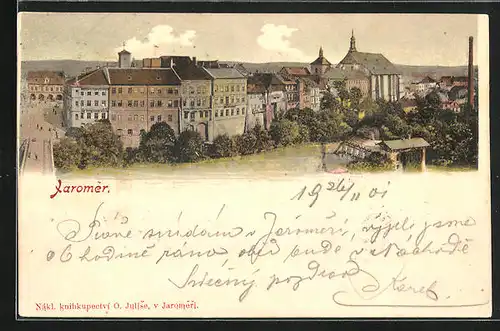 Jaroměř.
19 26/II 01
Pivné snídám v Jaroměři, vyjeli jsme
o 6 hodině ráno, oběd bude v Náchodě
Srdečný pozdrav Karel
Nákl. knihkupectví O. Juliše, v Jaroměři.